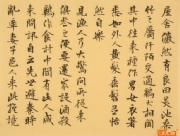 屋舍儼然有良田美池桑
竹之屬阡陌交通鷄犬相聞
其中往來種作男女衣著
悉如外人黃髮垂髫並怡
然自樂
見漁人乃大驚問所從來
具答之便要還家設酒殺
鷄作食村中聞有此人咸
來問訊自云先世避秦時
亂率妻子邑人來此絕境